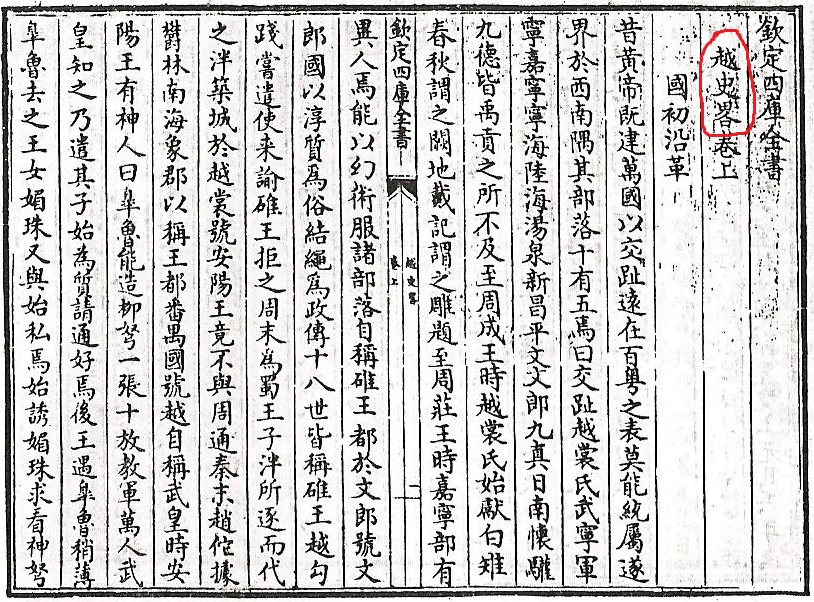 欽定四庫全書
越史畧卷上
國初沿革
昔黃帝既建萬國以交趾遠在百粤之表莫能統屬遂
界於西南隅其部落十有五焉曰交趾越裳氏武寧軍
寧嘉寧寧海陸海湯泉新昌平文文郎九真日南懷驩
九德皆禹貢之所不及至周成王時越裳氏始獻白雉
春秋謂之闕地戴記謂之雕題至周莊王時嘉寧部有
欽定四庫全書
越史畧
卷上
異人焉能以幻術服諸部落自稱碓王都於文郎號文
郎國以淳質為俗結繩為政傳十八世皆稱碓王越勾
踐嘗遣使来諭碓王拒之周末為蜀王子泮所逐而代
之泮築城於越裳號安陽王竟不與周通秦末趙佗據
欝林南海象郡以稱王都番禺國號越自稱武皇時安
陽王有神人曰臯魯能造柳弩一張十放教軍萬人武
皇知之乃遣其子始為質請通好焉後王遇臯魯稍薄
臯魯去之王女媚珠又與始私焉始誘媚珠求看神弩